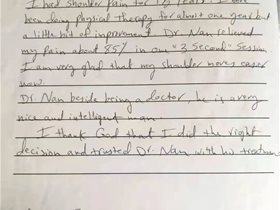 I had shoulder pain for 1½ years. I have
been doing physical therapy for almost one year but
a little bit of improvement. Dr. Nan relieved
my pain about 85% in one "3 Second" Session
I am very glad that my shoulder moves easier
now.
Dr. Nan beside being a doctor, he is a very
nice and intelligent man.
I thank God that I did the right
decision and trusted Dr. Nan with his treatment